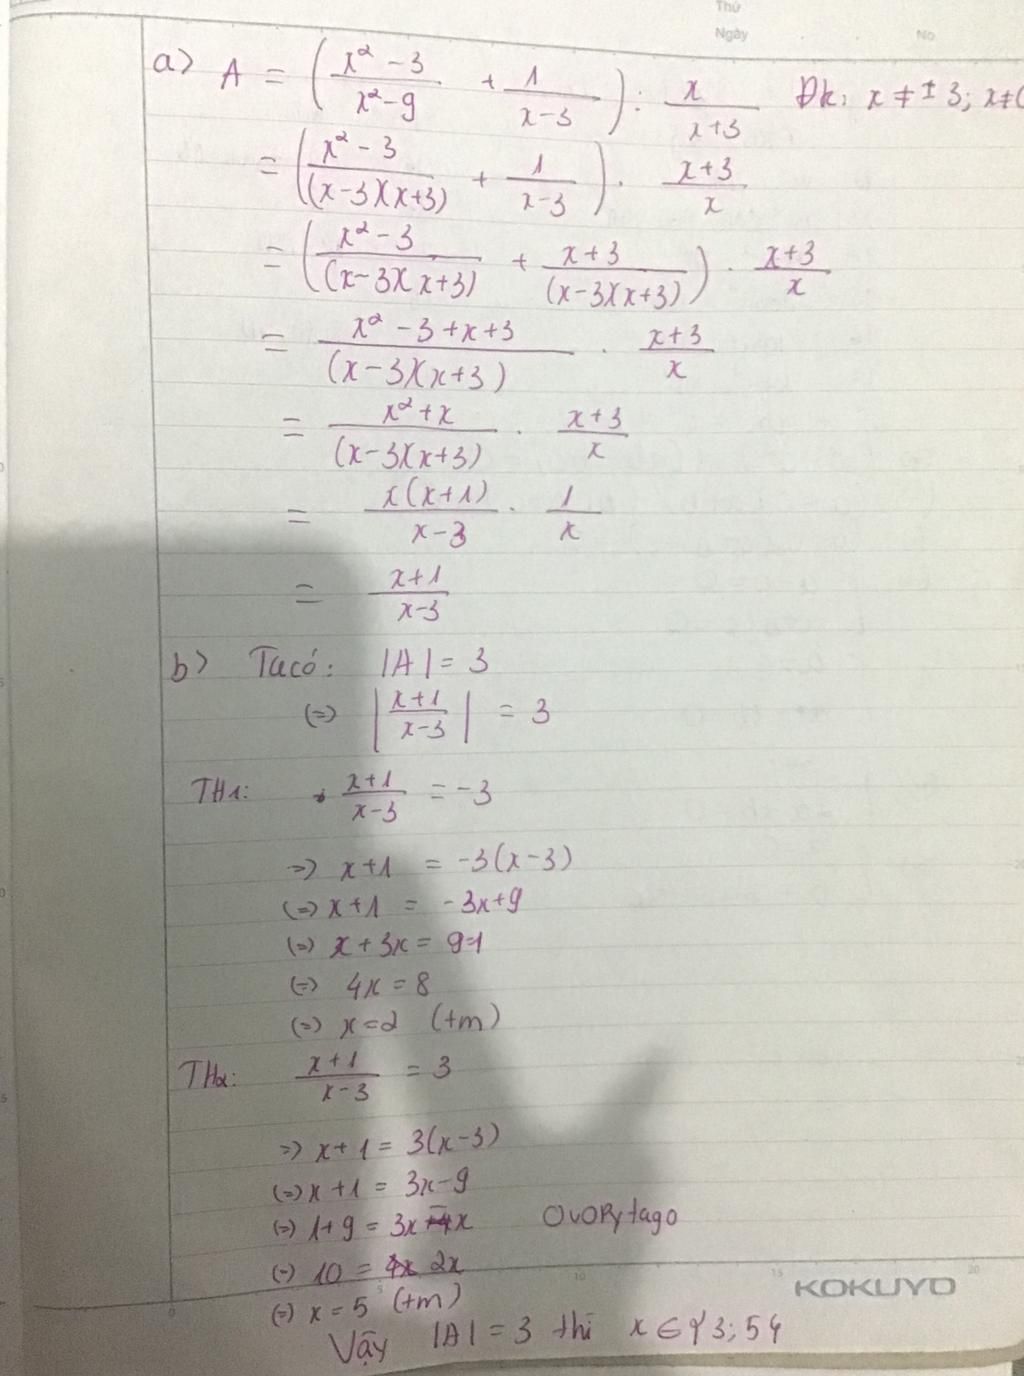 Thứ
Ngày No
a) A = (x² - 3 / x² - 9 + 1 / x - 3) : x / x + 3 Đk: x ≠ ± 3; x ≠ 0
= (x² - 3 / (x - 3)(x + 3) + 1 / x - 3) . x + 3 / x
= (x² - 3 / (x - 3)(x + 3) + x + 3 / (x - 3)(x + 3)) . x + 3 / x
= x² - 3 + x + 3 / (x - 3)(x + 3) . x + 3 / x
= x² + x / (x - 3)(x + 3) . x + 3 / x
= x(x + 1) / x - 3 . 1 / x
= x + 1 / x - 3
b) Ta có: |A| = 3
(=) |x + 1 / x - 3| = 3
TH1: x + 1 / x - 3 = -3
=) x + 1 = -3(x - 3)
(=) x + 1 = -3x + 9
(=) x + 3x = 9-1
(=) 4x = 8
(=) x = 2 (tm)
TH2: x + 1 / x - 3 = 3
=) x + 1 = 3(x - 3)
(=) x + 1 = 3x - 9
(=) 1 + 9 = 3x - x OvOPytago
(=) 10 = 2x
(=) x = 5 (tm)
KOKUYO
Vậy |A| = 3 thì x ∈ {3; 5}